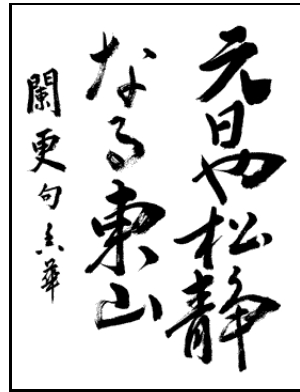 元日や松静
なる東山
闌更句 華